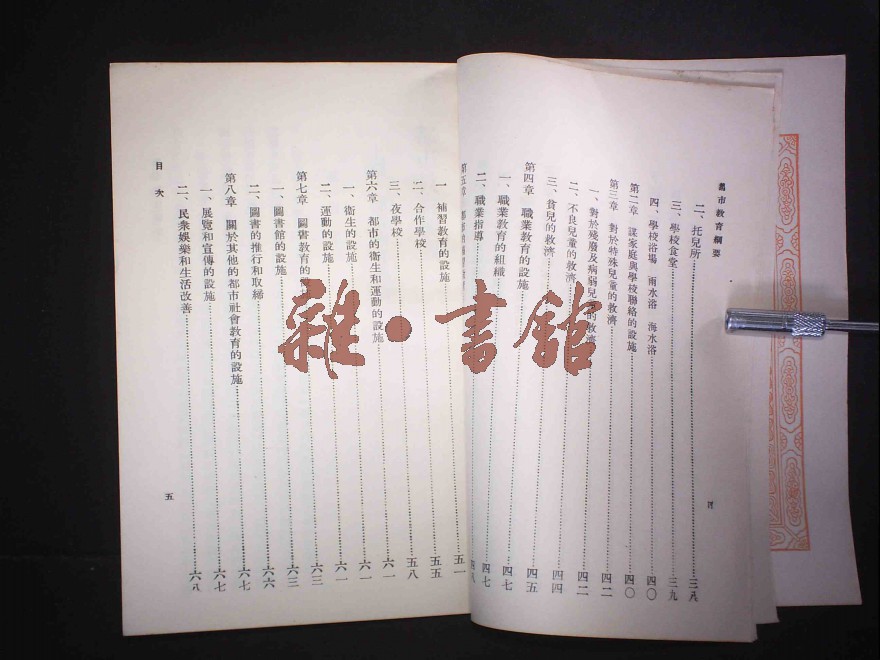 都市教育綱要
二、托兒所…………三八
三、學校食堂…………三九
四、學校浴場 雨水浴 海水浴…………四〇
第二章 謀家庭與學校聯絡的設施…………四〇
第三章 對於特殊兒童的救濟…………四二
一、對於殘廢及病弱兒童的救濟…………四二
二、不良兒童的救濟…………四四
三、貧兒的救濟…………四四
第四章 職業教育的設施…………四五
一、職業教育的組織…………四七
二、職業指導…………四七
第五章 都市的補習教育…………四八
一 補習教育的設施…………五一
二、合作學校…………五五
三、夜學校…………五八
第六章 都市的衛生和運動的設施…………六一
一、衛生的設施…………六一
二、運動的設施…………六一
第七章 圖書教育的…………六三
一、圖書館的設施…………六三
二、圖書的推行和取締…………六六
第八章 關於其他的都市社會教育的設施…………六七
一、展覽和宣傳的設施…………六七
二、民衆娛樂和生活改善…………六八
目次
五
雜·書館